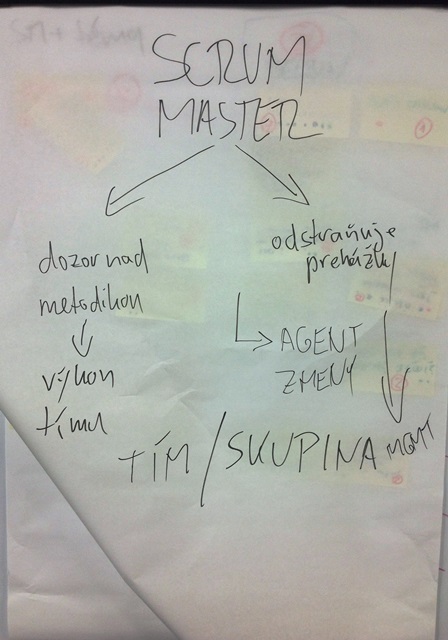 SCRUM
MASTER
dozor nad
metodikou
výkon
tímu
odstraňuje
prekážky
AGENT
ZMENY
TÍM / SKUPINA MGMT